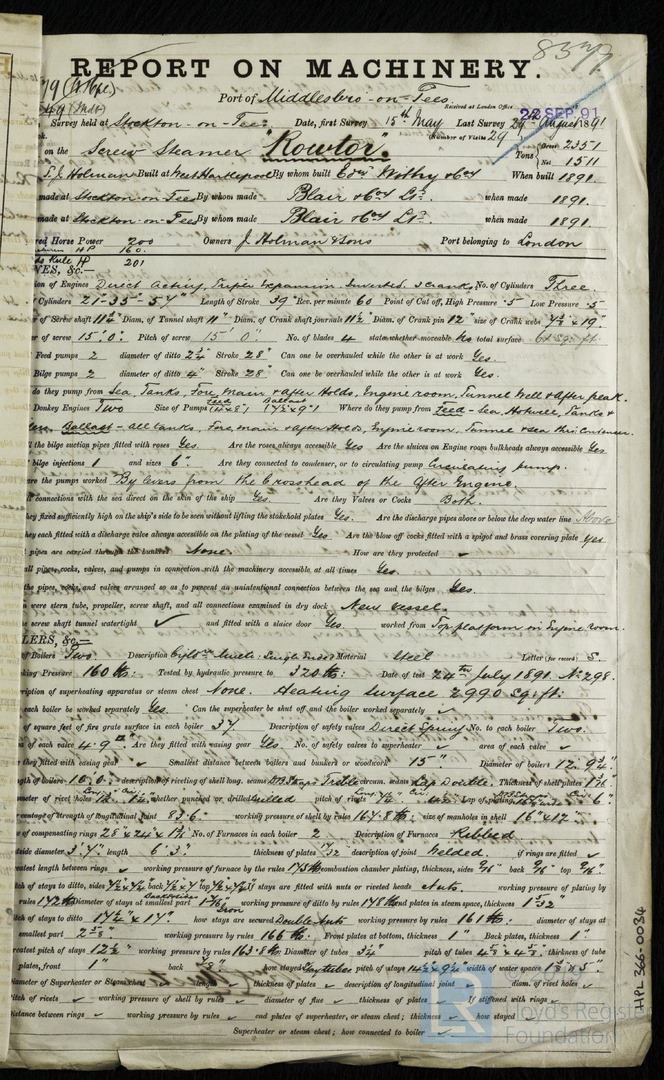 REPORT ON MACHINERY.
Port of Middlesbro-on-Tees
Received at London Office 22 SEP. 91
Survey held at Stockton-on-Tees Date, first Survey 18th May Last Survey 29th August 1891
(Number of Visits 29
on the Screw Steamer "Rowtor" Tons Gross 2351 Net 1511
J. Holman Built at West Hartlepool By whom built Edwd Withy & Co When built 1891.
made at Stockton-on-Tees By whom made Blair & Co Ld. when made 1891.
made at Stockton-on-Tees By whom made Blair & Co Ld. when made 1891.
Horse Power 200 Owners J. Holman & Sons Port belonging to London
160.
Rule HP 201
NES, &c.—
of Engines Direct Acting, Triple Expansion Inverted 3 cranks No. of Cylinders Three.
Cylinders 21"-35"-57" Length of Stroke 39" Rev. per minute 60 Point of Cut off, High Pressure .5 Low Pressure .5
of Screw shaft 11½" Diam. of Tunnel shaft 11" Diam. of Crank shaft journals 11½" Diam. of Crank pin 12" size of Crank webs 7¾" x 19"
of screw 15'.0" Pitch of screw 15'.0" No. of blades 4 state whether moveable No total surface sq. ft.
Feed pumps 2 diameter of ditto 2¾" Stroke 28" Can one be overhauled while the other is at work Yes.
Bilge pumps 2 diameter of ditto 4" Stroke 28" Can one be overhauled while the other is at work Yes.
do they pump from Sea, Tanks, Fore, main & after Holds, Engine room, Tunnel Well & After peak.
Donkey Engines Two Size of Pumps Feed (4 x 8") Ballast (7½ x 9") Where do they pump from Feed - Sea, Hotwell, Tanks &
Ballast - All tanks, Fore, main & after Holds, Engine room, Tunnel & sea thro' Condenser.
the bilge suction pipes fitted with roses Yes Are the roses always accessible Yes Are the sluices on Engine room bulkheads always accessible Yes
bilge injections 1 and sizes 6" Are they connected to condenser, or to circulating pump Circulating pump.
are the pumps worked By levers from the Crosshead of the After Engine.
connections with the sea direct on the skin of the ship Yes. Are they Valves or Cocks Both.
they fixed sufficiently high on the ship's side to be seen without lifting the stokehold plates Yes. Are the discharge pipes above or below the deep water line Above
they each fitted with a discharge valve always accessible on the plating of the vessel Yes Are the blow off cocks fitted with a spigot and brass covering plate Yes
pipes are carried through the bunkers None. How are they protected ✓
all pipes, cocks, valves, and pumps in connection with the machinery accessible at all times Yes.
the pipes, cocks, and valves arranged so as to prevent an unintentional connection between the sea and the bilges Yes.
were stern tube, propeller, screw shaft, and all connections examined in dry dock New vessel.
screw shaft tunnel watertight ✓ and fitted with a sluice door Yes worked from Top platform in Engine room.
LERS, &c.—
of Boilers Two Description Cyl. Mult: Single Ended Material Steel Letter (for record) S.
king Pressure 160 lb: Tested by hydraulic pressure to 320 lb: Date of test 24th July 1891. No 298.
ription of superheating apparatus or steam chest None. Heating surface 2990 Sq. ft:
each boiler be worked separately Yes. Can the superheater be shut off and the boiler worked separately ✓
of square feet of fire grate surface in each boiler 37 Description of safety valves Direct Spring No. to each boiler Two.
of each valve 4.9 Are they fitted with easing gear Yes No. of safety valves to superheater ✓ area of each valve ✓
they fitted with easing gear ✓ Smallest distance between boilers and bunkers or woodwork 15" Diameter of boilers 12'.9½"
ngth of boilers 16'.0" description of riveting of shell long. seams DB Straps Treble circum. seams Lap Double. Thickness of shell plates
meter of rivet holes whether punched or drilled Drilled pitch of rivets Lap of plating 6"
rcentage of strength of longitudinal joint 83.6 working pressure of shell by rules 164.8 lb: size of manholes in shell 16" x 12"
of compensating rings 28" x 24 x No. of Furnaces in each boiler 2 Description of Furnaces Ribbed
side diameter 3'.7" length 6'.3" thickness of plates 17/32" description of joint Welded. if rings are fitted ✓
eatest length between rings ✓ working pressure of furnace by the rules 175 lb combustion chamber plating, thickness, sides 9/16" back 9/16" top 9/16"
ch of stays to ditto, sides back top If stays are fitted with nuts or riveted heads Nuts. working pressure of plating by
rules 172 lb Diameter of stays at smallest part working pressure of ditto by rules plates in steam space, thickness 1 1/32"
ch of stays to ditto 17½" x 17" how stays are secured Double Nuts working pressure by rules 161 lb: diameter of stays at
smallest part 2⅝" working pressure by rules 166 lb: Front plates at bottom, thickness 1" Back plates, thickness 1"
reatest pitch of stays 12½" working pressure by rules 163.8 lb: Diameter of tubes 3¼" pitch of tubes 4⅝" x 4⅝" thickness of tube
plates, front 1" back ⅞" how stayed Stay tubes pitch of stays 14½" x 9¼" width of water spaces
iameter of Superheater or Steam chest ✓ length ✓ thickness of plates ✓ description of longitudinal joint ✓ diam. of rivet holes ✓
itch of rivets ✓ working pressure of shell by rules ✓ diameter of flue ✓ thickness of plates ✓ If stiffened with rings ✓
istance between rings ✓ working pressure by rules ✓ end plates of superheater, or steam chest; thickness ✓ how stayed
Superheater or steam chest; how connected to boiler ✓
HPL 366-0034
LR
Lloyd's Register
Foundation